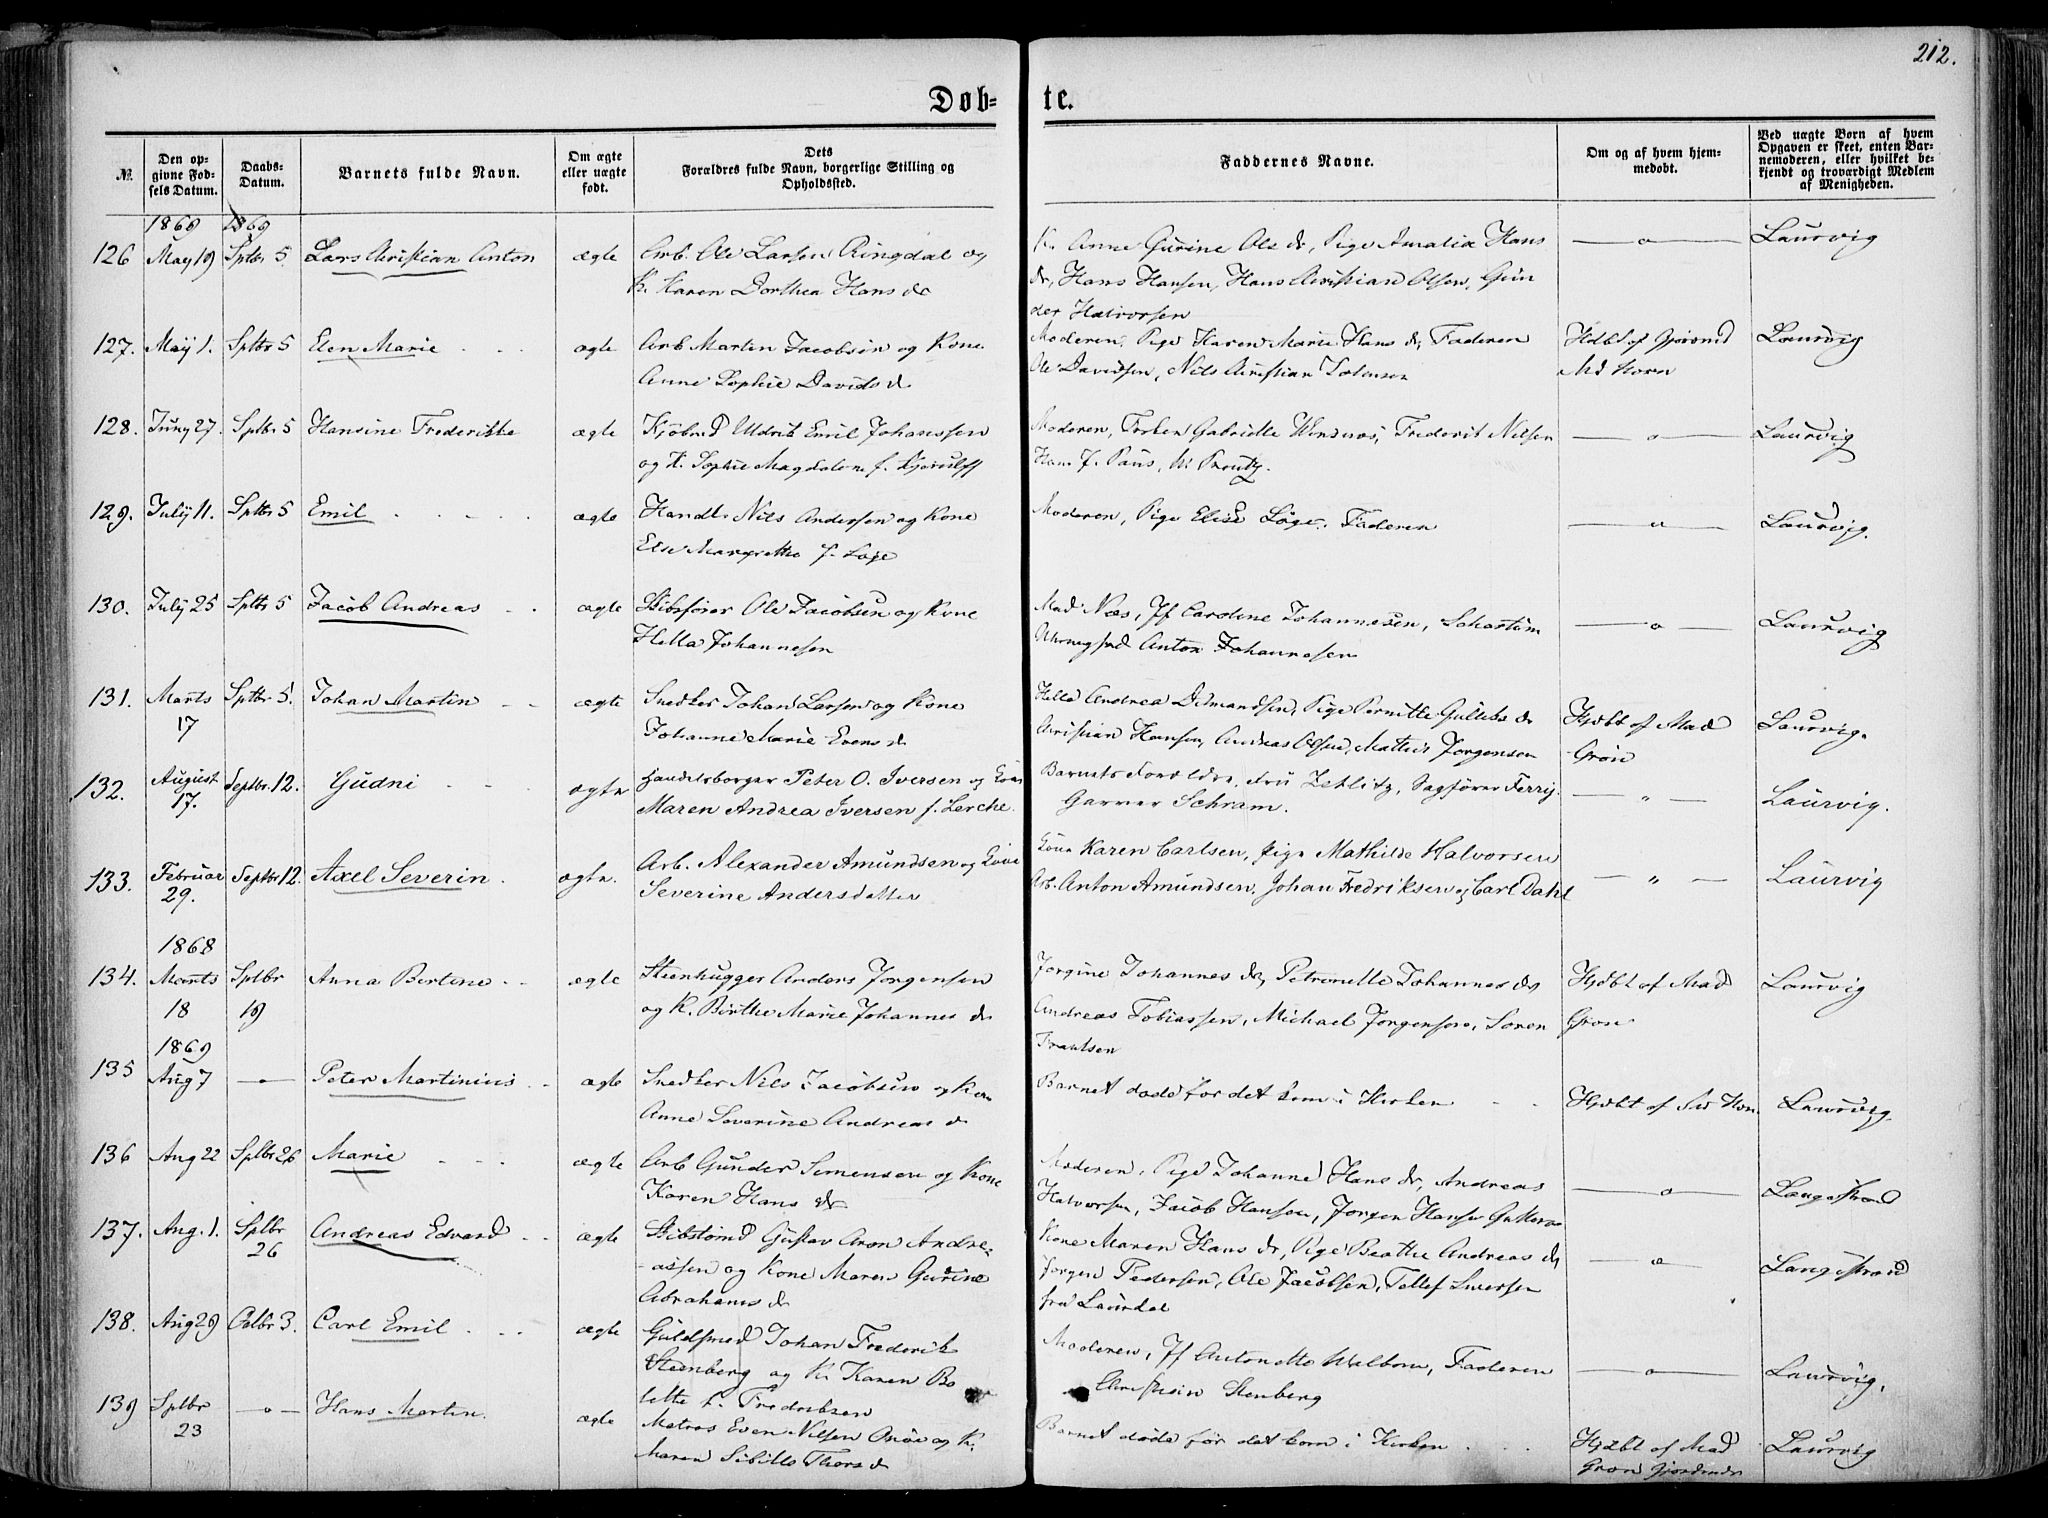 212.
Døb-
te.
№.
Den op-
givne Fød-
sels Datum.
Daabs-
Datum.
Barnets fulde Navn.
Om ægte
eller uægte
født.
Dets
Forældres fulde Navn, borgerlige Stilling og
Opholdssted.
Faddernes Navne.
Om og af hvem hjem-
medøbt.
Ved uægte Børn af hvem
Opgaven er skeet, enten Bar-
nemoderen, eller hvilket be-
kjendt og troværdigt Medlem
af Menigheden.
1869 1869
126 May 19 Sptbr 5 Lars Christian Anton ægte Arb. Ole Larsen Ringdal og
K. Karen Dorthea Hans dr
K. Anne Gurine Ols dr, Pige Amalia Hans
dr, Hans Hansen, Hans Christian Olsen, Gun
der Halvorsen
—o— Laurvig
127. May 1. Sptbr 5 Elen Marie ægte Arb Martin Jacobsen og Kone
Anne Sophie Davids d
Moderen, Pige Karen Marie Hans dr, Faderen
Ole Davidsen, Nils Christian
Hdbt af
Md Horn
Laurvig
128. Juny 27. Sptbr 5 Hansine Frederikke ægte Kjøbmd Uldrik Emil Johanssen
og K. Sophie Magdalene f.
Moderen, Frøken Gabrielle Frederik Nilsen
—o— Laurvig
129. July 11. Sptbr 5 Emil ægte Handl. Nils Andersen og Kone
Else Margrethe f. Løje
Moderen, Pige Elise Løge, Faderen
—o— Laurvig.
130. July 25 Sptbr 5 Jacob Andreas ægte Skibsfører Ole Jacobsen og Kone
Hella Johannesen
Mad Næs, Jf Caroline Johannesen,
Anton Johannesen
—o— Laurvig
131. Marts Sptbr 5. Johan Martin ægte Snedker Johan Larsen og Kone
17
Johanne Marie Evens d
Helle Andrea Pige Pernille Gulleks dr
Christian Hansen, Andreas Olsen, Mathis Jorgensen
Hjdbt af Mad
Grøn
Laurvig.
132. August Septbr. 12. Gudni ægte Handelsborger Peter O. Iversen og Kone
17.
Maren Andrea Iversen f. Lerche.
Barnets Forældre, Fru Zetlitz, Sagfører Ferry.
Garver Schram.
— „ — Laurvig.
133. Februar Septbr 12. Axel Severin. ægte. Arb. Alexander Amundsen og Kone
29.
Severine Andersdatter
Kone Karen Carlsen, Pige Mathilde Halvorsen
Arb. Anton Amundsen, Johan Fredriksen og Carl Dahl
— „ — Laurvig
1868
134. Marts Sptbr Anna Bertine ægte Steenhugger Anders Jorgensen
18 19
og K. Birthe Marie Johannes d
Jorgine Johannes dr, Petronelle Johannes dr
Andreas Tobiassen, Michael Jorgensen, Soren
Frantsen
Hjdbt af Mad
Grøn
Laurvig
1869
135 Aug 7 —o— Peter Martinius ægte Snedker Nils Jacobsen og Kone
Anne Severine Andreas d
Barnet døde før det kom i Kirken
Hjdbt af
Laurvig.
136 Aug 22 Sptbr 26 Marie ægte Arb Gunder Simensen og Kone
Karen Hans dr
Moderen, Pige Johanne Hans dr, Andreas
Halvorsen, Jacob Hansen, Jorgen Hansen
—o— Langestrand
137. Aug. 1. Sptbr Andreas Edvard ægte Skibstømd Gustav Aron Andre-
26
-assen og Kone Maren Gurine
Abrahams d
Kone Maren Hans dr, Pige Beathe Andreas dr
Jorgen Pedersen, Ole Jacobsen, Tellef Siversen
fra Laurdal
—o— Langestrand
138. Aug 29 Octbr 3. Carl Emil ægte Guldsmed Johan Frederik
Steenberg og K. Karen Bo
lette f. Fredriksen
Moderen, Jf Antonette Faderen
Christian Stenberg
—o— Laurvig.
139 Sptbr —o— Hans Martin. ægte Matros Even Nilsen og K.
23
Maren Sibille Thors d
Barnet døde før det kom i Kirken
Hjdbt af Mad
Grøn
Laurvig